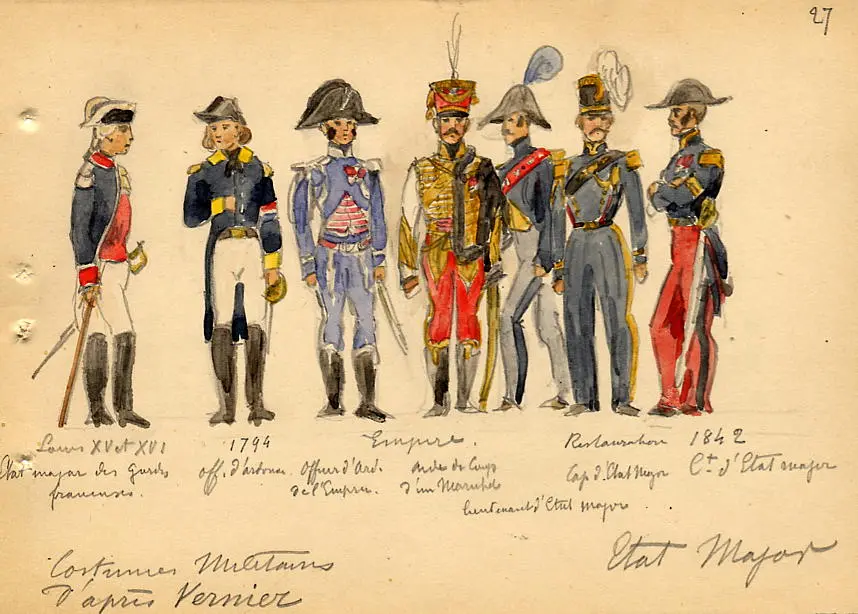 27
Louis XV et XVI
Etat major des Gardes
françaises.
1794
Off. d'ordonn.
Empire.
Officier d'Ord.
de l'Empire.
Aide de Camp
d'un Maréchal
lieutenant d'Etat major
Restauration
Cap. d'Etat Major
1842
Ct. d'Etat major
Costumes Militaires
D'après Vernier
Etat Major